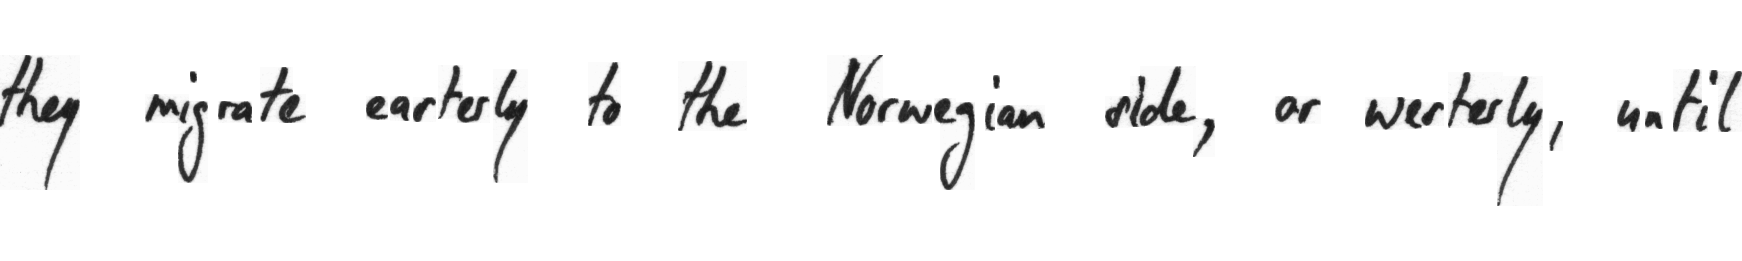 they migrate easterly to the Norwegian side, or westerly, until